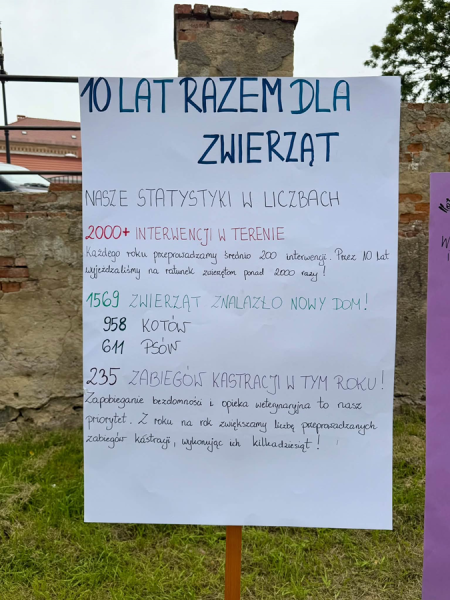 10 LAT RAZEM DLA
ZWIERZĄT
NASZE STATYSTYKI W LICZBACH
2000+ INTERWENCJI W TERENIE
Każdego roku przeprowadzamy średnio 200 interwencji. Przez 10 lat
wyjeżdżaliśmy na ratunek zwierzętom ponad 2000 razy!
1569 ZWIERZĄT ZNALAZŁO NOWY DOM!
958 KOTÓW
611 PSÓW
235 ZABIEGÓW KASTRACJI W TYM ROKU!
Zapobieganie bezdomności i opieka weterynaryjna to nasz
priorytet. Z roku na rok zwiększamy liczbę przeprowadzanych
zabiegów kastracji, wykonując ich kilkadziesiąt!